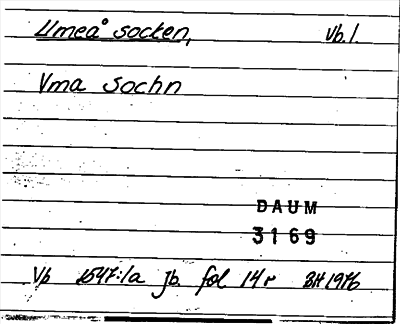 Umeå socken, Vb.l.
Vma Sochn
DAUM
3169
Vb 1547:1a jb. fol 14 r BH 1976